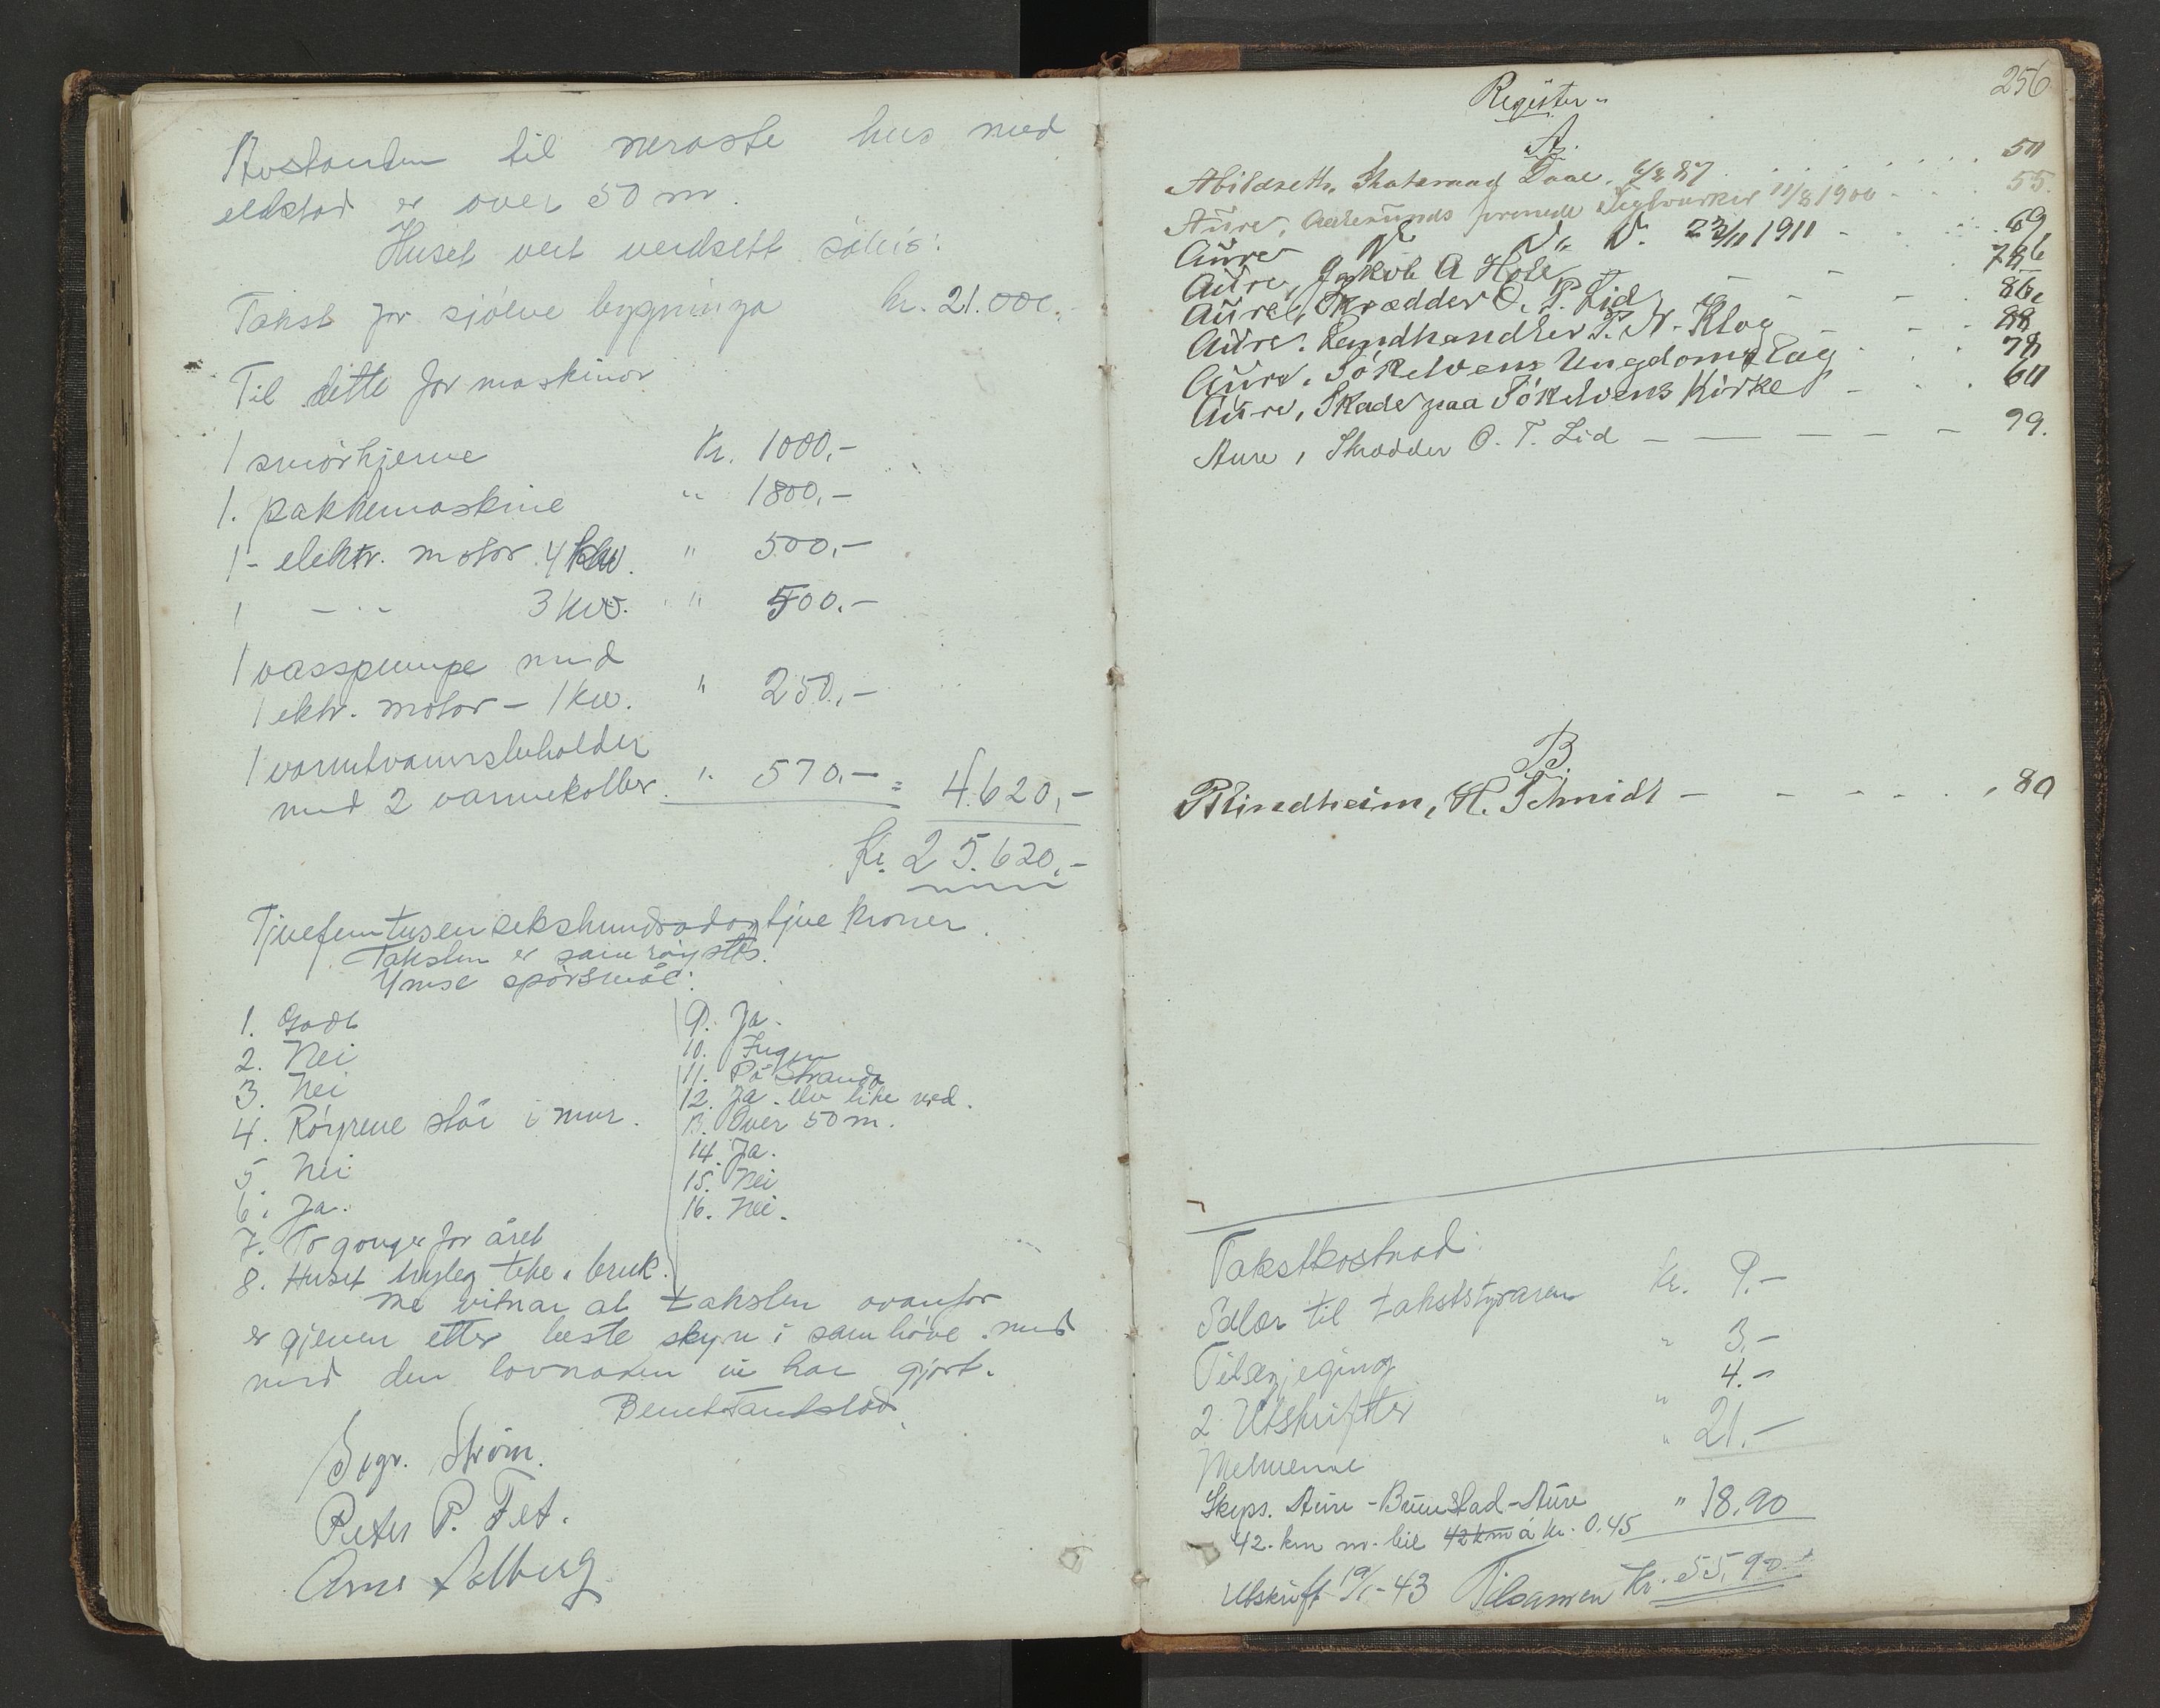 Avstanden til næraste hus med
eldstad er over 50 m.
Huset vert verdsett såleis:
Takst for sjølve bygninga kr. 21.000,-
Til dette for maskinor
1 smörkjerne Kr. 1000,-
1. pakkemaskine " 1800,-
1- elektr. motor 4 kw. " 500,-
1 - " - 3 kw. " 500.-
1 vasspumpe med
1 ektr. motor - 1 kw. " 250,-
1 varmtvannsbeholder
med 2 varmekolber. " 570.- = 4.620,-
kr. 25.620,-
Tjuefemtusensekshundradogtjue kroner.
Taksten er samröystes.
Ymse spörsmål:
1. Godt
2. Nei
3. Nei
4. Röyrene står i mur.
5 Nei
6. Ja.
7. To gonger for året
8. Huset teke i bruk.
9. Ja.
10. Ingen
11. På Stranda
12. Ja. Elv like ved.
13. Over 50 m.
14. Ja.
15. Nei
16. Nei.
Me vitnar at taksten ovanfor
er gjeven etter beste skyn i samhöve med
med den lovnaden vi har gjort.
Bernt Tandstad
Sigr. Ström.
Peter P. Fet.
Arne Solberg
256
Register.
A.
Abildseth, Daae. 87 . . . . 50
Aure, Aalesunds forenede Teglverker 11/8 1900 - . . 55.
Aure " " " 23/11 1911 - . . . 69
Aure, Jakob A Hole - - - . 786
Aure, Skrædder O. T. Lid - - - 86,
Aure. Landhandler P. N. Klog - - . 88
Aure. Sökelvens Ungdoms Lag . . . 78
Aure, Skade paa Sökelvens Kirke - . . 60
Aure, Skrædder O. T. Lid - - - - - 99.
B.
Blindheim, H. Schmidt - - - - . , 80
Takstkostnad:
Salær til takststyraren kr. 9.-
Tilsegjeging " 3,-
2 Utskrifter " 4.-
Metnennd " 21.-
Skyss. Aure - Brunstad - Aure " 18,90
42. km m. bil 42 km á kr. 0.45
Utskrift 19/1-43 Tilsamen kr. 55,90.